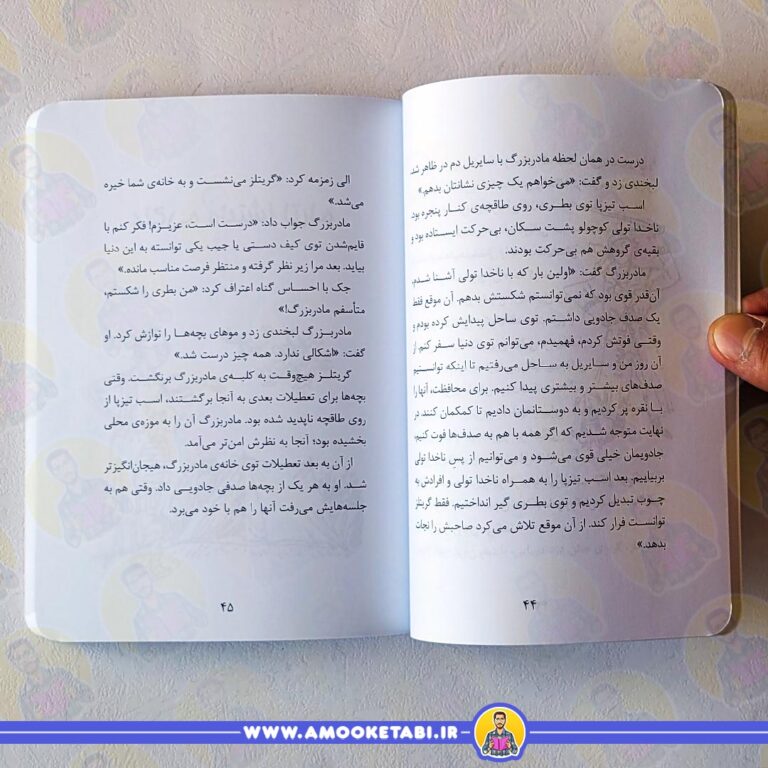 درست در همان لحظه مادربزرگ با سایریل دم در ظاهر شد.
لبخندی زد و گفت: «می‌خواهم یک چیزی نشانتان بدهم.»
اسب تیزپا توی بطری، روی طاقچه‌ی کنار پنجره بود.
ناخدا تولی کوچولو پشت سکان، بی‌حرکت ایستاده بود و
بقیه‌ی گروهش هم بی‌حرکت بودند.
مادربزرگ گفت: «اولین بار که با ناخدا تولی آشنا شدم،
آن‌قدر قوی بود که نمی‌توانستم شکستش بدهم. آن موقع فقط
یک صدف جادویی داشتم. توی ساحل پیدایش کرده بودم و
وقتی فوتش کردم، فهمیدم، می‌توانم توی دنیا سفر کنم. از
آن روز من و سایریل به ساحل می‌رفتیم تا اینکه توانستیم
صدف‌های بیشتر و بیشتری پیدا کنیم. برای محافظت، آنها را
با نقره پر کردیم و به دوستانمان دادیم تا کمکمان کنند. در
نهایت متوجه شدیم که اگر همه با هم به صدف‌ها فوت کنیم،
جادویمان خیلی قوی می‌شود و می‌توانیم از پس ناخدا تولی
بربیاییم. بعد اسب تیزپا را به همراه ناخدا تولی و افرادش به
چوب تبدیل کردیم و توی بطری گیر انداختیم. فقط گریتلز
توانست فرار کند. از آن موقع تلاش می‌کرد صاحبش را نجات
بدهد.»
۴۴
الی زمزمه کرد: «گریتلز می‌نشست و به خانه‌ی شما خیره
می‌شد.»
مادربزرگ جواب داد: «درست است، عزیزم! فکر کنم با
قایم‌شدن توی کیف دستی یا جیب یکی توانسته به این دنیا
بیاید. بعد مرا زیر نظر گرفته و منتظر فرصت مناسب مانده.»
جک با احساس گناه اعتراف کرد: «من بطری را شکستم،
متأسفم مادربزرگ!»
مادربزرگ لبخندی زد و موهای بچه‌ها را نوازش کرد. او
گفت: «اشکالی ندارد. همه چیز درست شد.»
گریتلز هیچ‌وقت به کلبه‌ی مادربزرگ برنگشت. وقتی
بچه‌ها برای تعطیلات بعدی به آنجا برگشتند، اسب تیزپا از
روی طاقچه ناپدید شده بود. مادربزرگ آن را به موزه‌ی محلی
بخشیده بود؛ آنجا به نظرش امن‌تر می‌آمد.
از آن به بعد تعطیلات توی خانه‌ی مادربزرگ، هیجان‌انگیزتر
شد. او به هر یک از بچه‌ها صدفی جادویی داد. وقتی هم به
جلسه‌هایش می‌رفت آنها را هم با خود می‌برد.
۴۵
WWW.AMOOKETABI.IR